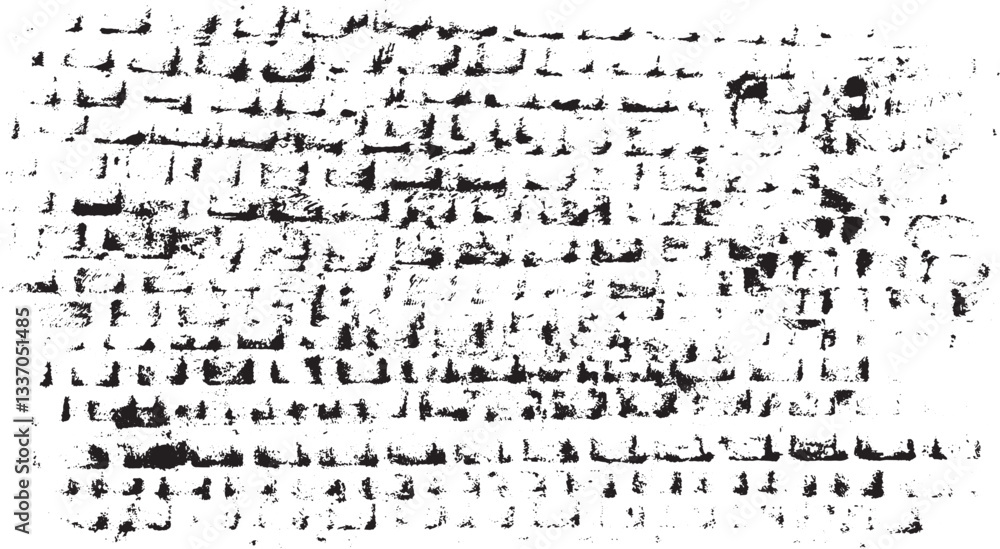 Adobe Stock | #1337051485